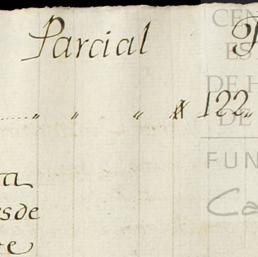 Parcial
" " " # 122"
a
sde
e
CEN
ES
DE H
DE
FUN
Ca